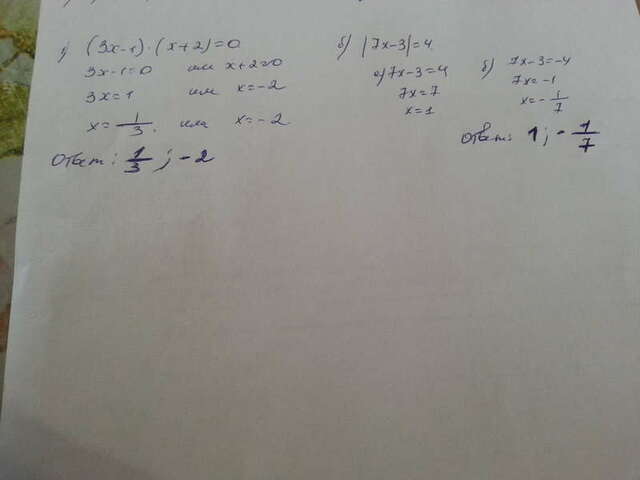 (3x-1)·(x+2)=0
3x-1=0 или x+2=0
3x=1 или x=-2
x=1/3. или x=-2
Ответ: 1/3; -2
б) |7x-3|=4
а) 7x-3=4
7x=7
x=1
б) 7x-3=-4
7x=-1
x=-1/7
Ответ: 1; -1/7